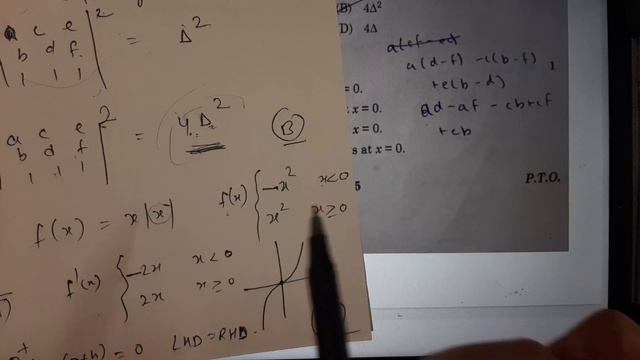 a c e
b d f
1 1 1 |² = Δ²
a c e
b d f
1 1 1 |² = 4Δ² (B)
f(x) = x|x|
f(x) { -x² x<0
x² x≥0
f'(x) { -2x x<0
2x x≥0
(+h) = 0 LHD = RHD.
(B) 4Δ²
D) 4Δ
a(d-f) - c(b-f)
+e(b-d)
ad-af - cb+cf
+eb
= 0.
x = 0.
x = 0.
s at x = 0.
5
P.T.O.